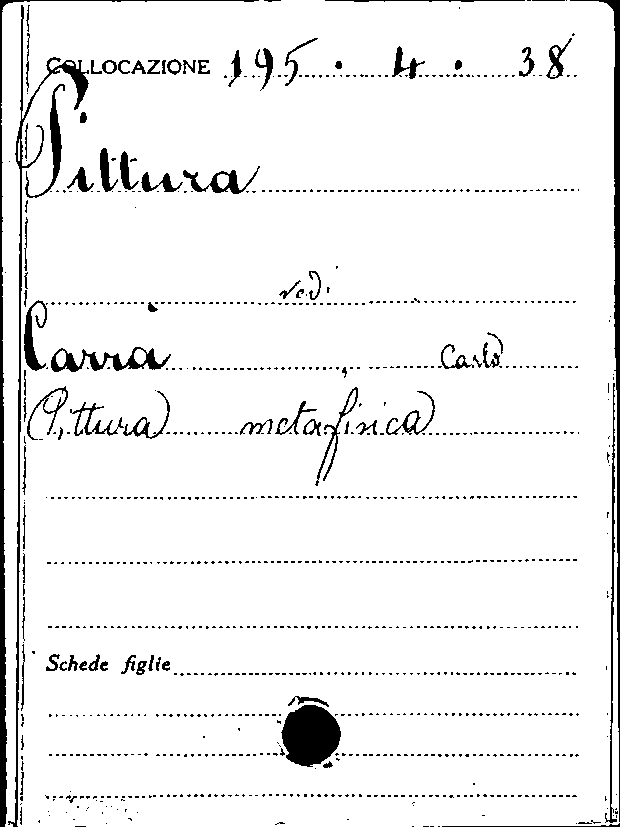 COLLOCAZIONE 195 . 4 . 38
Pittura
vedi
Carrà , Carlo
Pittura metafisica
Schede figlie